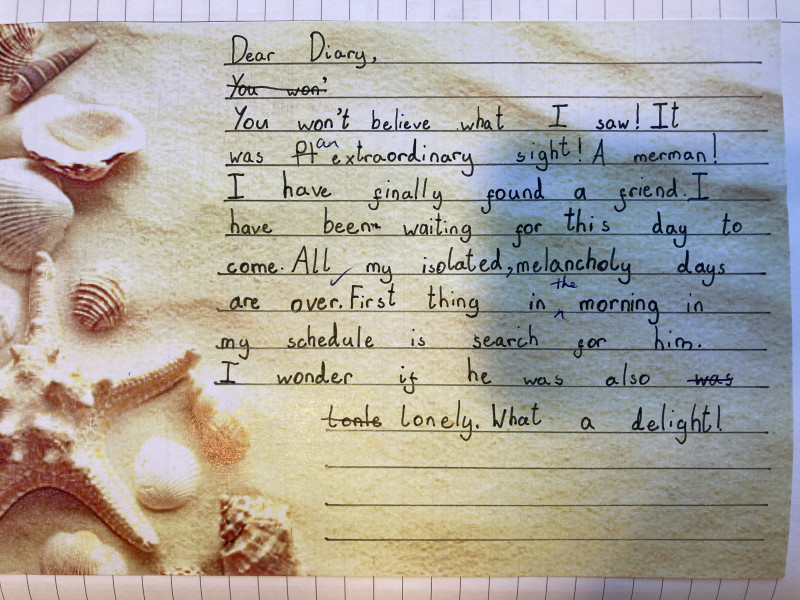 Dear Diary,
You won'
You won't believe what I saw! It
was an extraordinary sight! A merman!
I have finally found a friend. I
have been waiting for this day to
come. All my isolated, melancholy days
are over. First thing in the morning in
my schedule is search for him.
I wonder if he was also was
lonely. What a delight!